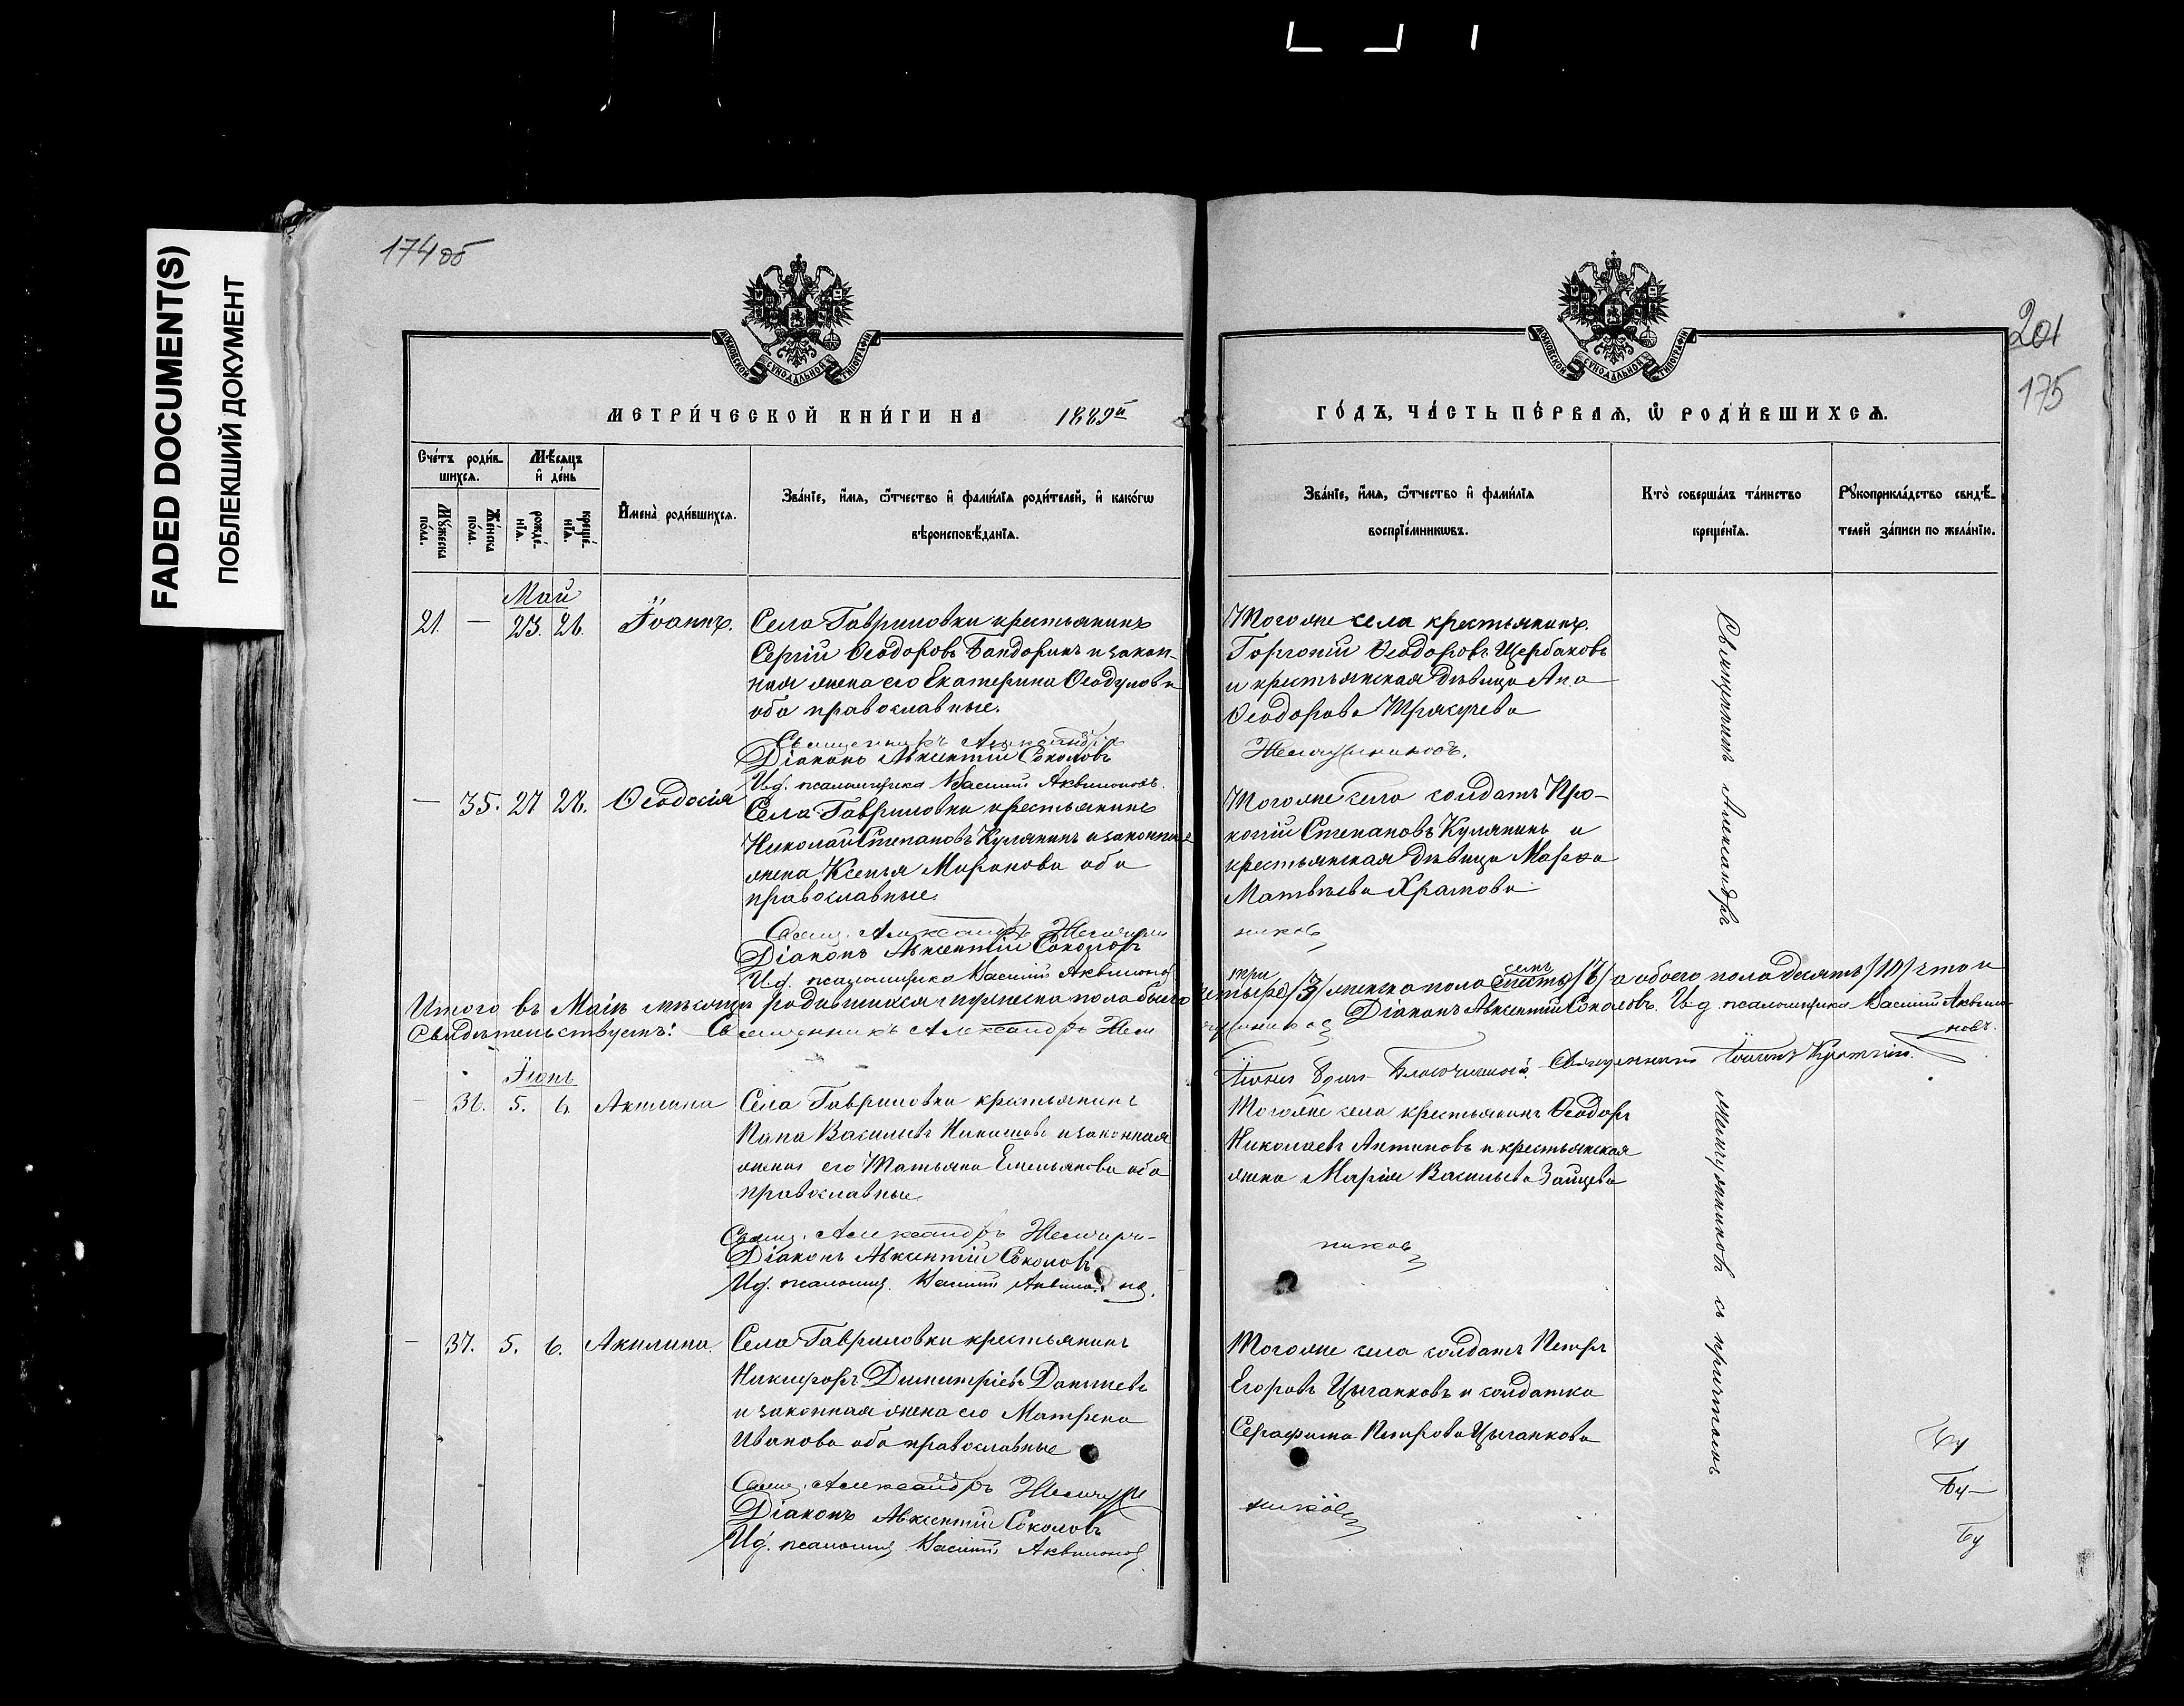 FADED DOCUMENT(S)
ПОБЛЕКШИЙ ДОКУМЕНТ
174 об
201
175
МОСКОВСКОЙ СѴНОДАЛЬНОЙ ТИПОГРАФІИ
МОСКОВСКОЙ СѴНОДАЛЬНОЙ ТИПОГРАФІИ
МЕТРИ́ЧЕСКОЙ КНИ́ГИ НА 1889й
ГО́ДЪ, ЧА́СТЬ ПЕ́РВАѦ, Ѡ РОДИ́ВШИХСѦ.
Сче́тъ роди́в-
шихсѧ.
Мꙋ́жеска по́ла.
Же́нска по́ла.
Мѣ́сѧцъ
и҆ де́нь
рожде́-
нїѧ.
креще́-
нїѧ.
И҆мена̀ роди́вшихсѧ.
Зва́нїе, и҆́мѧ, ѻ҆́тчество и҆ фами́лїѧ роди́телей, и҆ како́гѡ
вѣроисповѣ́данїѧ.
Зва́нїе, и҆́мѧ, ѻ҆́тчество и҆ фами́лїѧ
воспрїе́мникѡвъ.
Кто̀ соверша́лъ та́инство
креще́нїѧ.
Рꙋкоприкла́дство свидѣ́-
телей за́писи по жела́нїю.
Май
21. — 23. 26. Іоаннъ. Села Гавриловки крестьянинъ
Сергій Ѳеодоровъ Бандоринъ и закон-
ная жена его Екатерина Ѳеодулова
оба православные.
Священникъ Александръ
Діаконъ Авксентій Соколовъ
И.д. псаломщика Василій Аквилоновъ.
Тогоже села крестьянинъ
Горгоній Ѳеодоровъ Щербаковъ
и крестьянская дѣвица Ан.а
Ѳеодорова Трясучева
Жемчужниковъ.
— 35. 27 28. Ѳеодосія Села Гавриловки крестьянинъ
Николай Степановъ Кулякинъ и законная
жена Ксенія Миронова оба
православные.
Свящ. Александръ Жемчуж
Діаконъ Авксентій Соколовъ
И.д. псаломщика Василій Аквилонов
Тогоже села солдатъ Про-
копій Степановъ Кулякинъ и
крестьянская дѣвица Марѳа
Матвѣева Храмова
никовъ
Итого въ Маіѣ мѣсяцѣ родившихся мужеска пола было четыре три /3/ женска пола шесть семь /7/ а обоего пола десять /10/ что и
свидѣтельствуетъ: Священникъ Александръ Жемчужниковъ Діаконъ Авксентій Соколовъ. И.д. псаломщика Василій Аквило-
новъ.
Благочинный Священникъ Іоаннъ
Іюнь
— 36. 5. 6. Акилина Села Гавриловки крестьянинъ
Василіевъ и законная
жена его Татьяна Емельянова оба
православные
Свящ. Александръ Жемчуж-
Діаконъ Авксентій Соколовъ
И.д. псаломщ. Василій Аквилонов.
Тогоже села крестьянинъ Ѳеодоръ
Николаевъ Антиповъ и крестьянская
жена Марія Васильева Зайцева
никовъ
— 37. 5. 6. Акилина. Села Гавриловки крестьянинъ
Никифоръ Димитріевъ Данишевъ
и законная жена его Матрена
Иванова оба православные
Свящ. Александръ Жемчуж
Діаконъ Авксентій Соколовъ
И.д. псаломщ. Василій Аквилонов
Тогоже села солдатъ Петръ
Егоровъ Цыганковъ и солдатка
Серафима Петрова Цыганкова
никовъ
Священникъ Александръ
Жемчужниковъ съ причтомъ